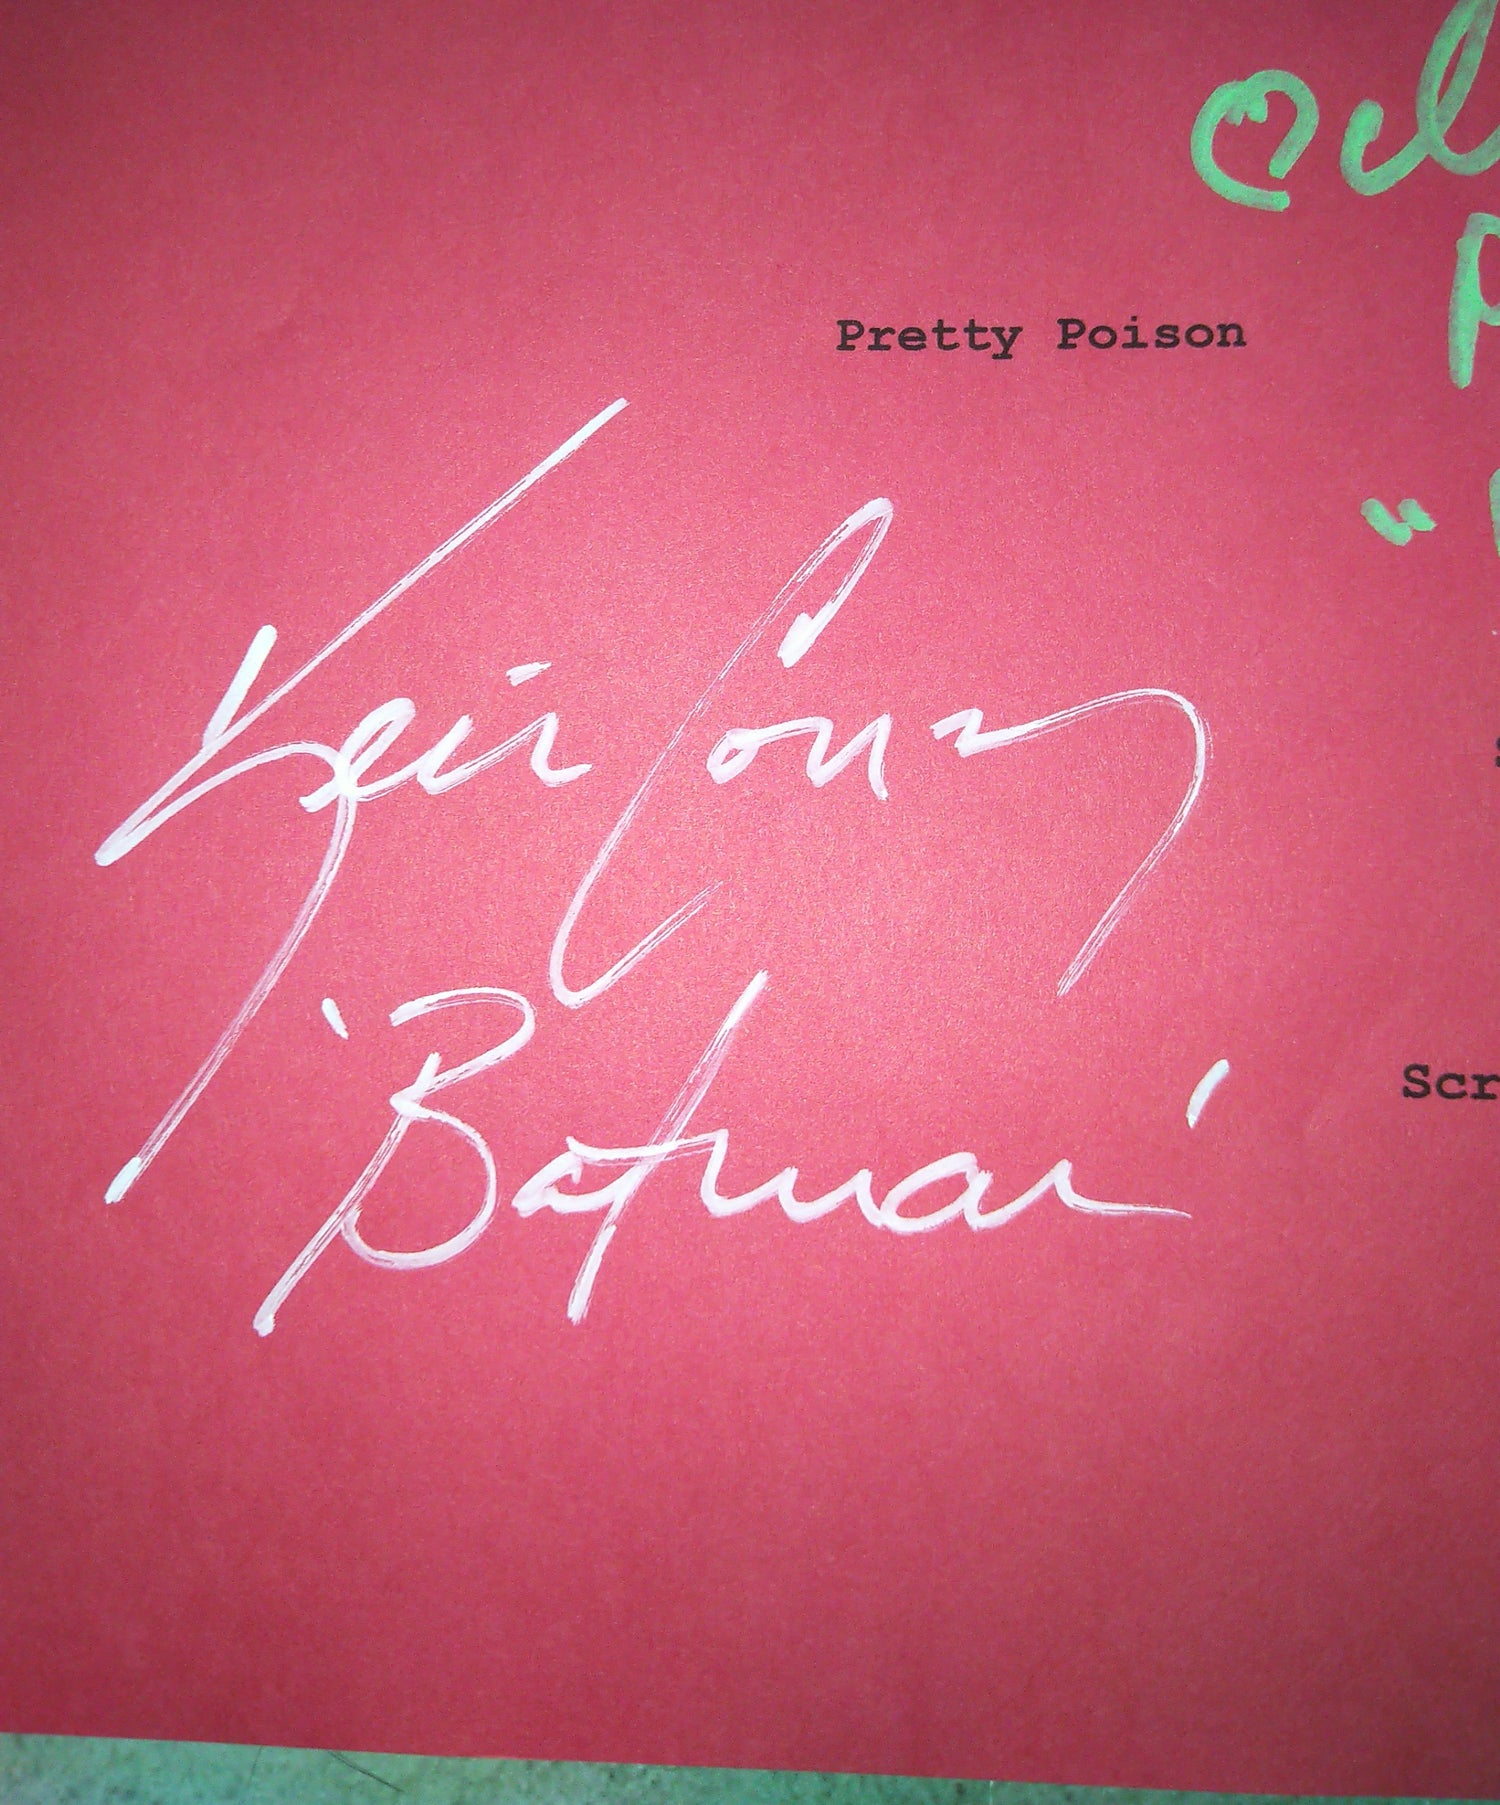 Pretty Poison
Kevin Conroy
'Batman'
Scr